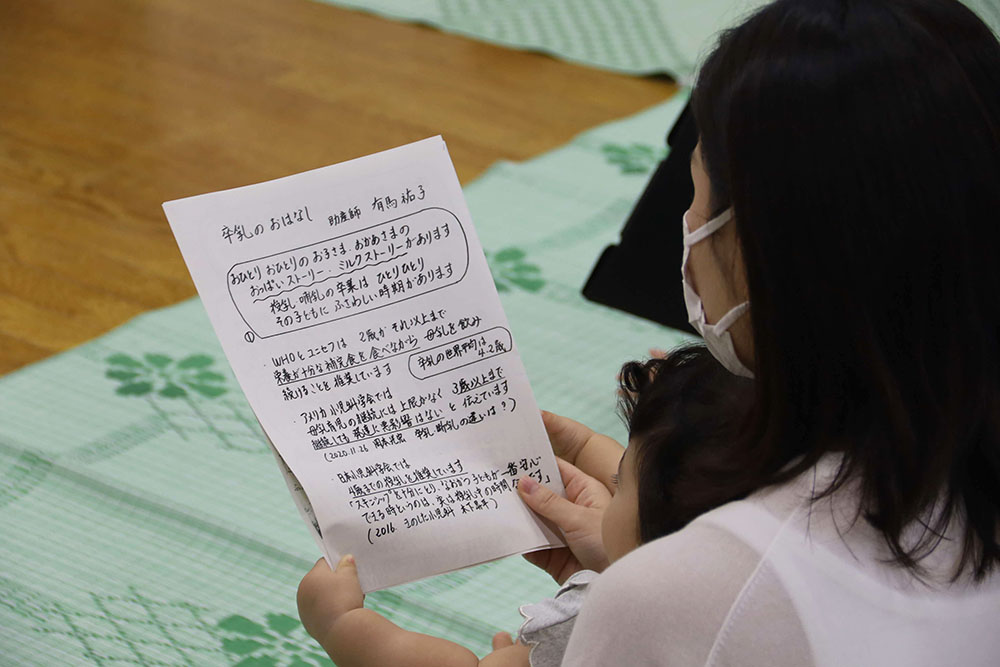 卒乳のおはなし 助産師 有馬祐子
おひとりおひとりのお子さま、おかあさまの
おっぱいストーリー、ミルクストーリーがあります
授乳、哺乳の卒業は ひとりひとり
その子どもに ふさわしい時期があります
①
・WHOとユニセフは 2歳か それ以上まで
栄養が十分な補完食を食べながら 母乳を飲み
続けることを推奨しています
卒乳の世界平均は
4.2歳
・アメリカ小児科学会では
母乳育児の継続には上限がなく 3歳以上まで
継続しても発達上悪影響はない と 伝えています
(2020.11.26 卒乳・断乳の違いは?)
・日本小児科学会では
4歳までの授乳を推奨しています
「スキンシップを十分にとり、なおかつ子どもが一番安心
できる時というのは、実は授乳中の時間なんです」
(2016 きのした小児科 木下昌平)